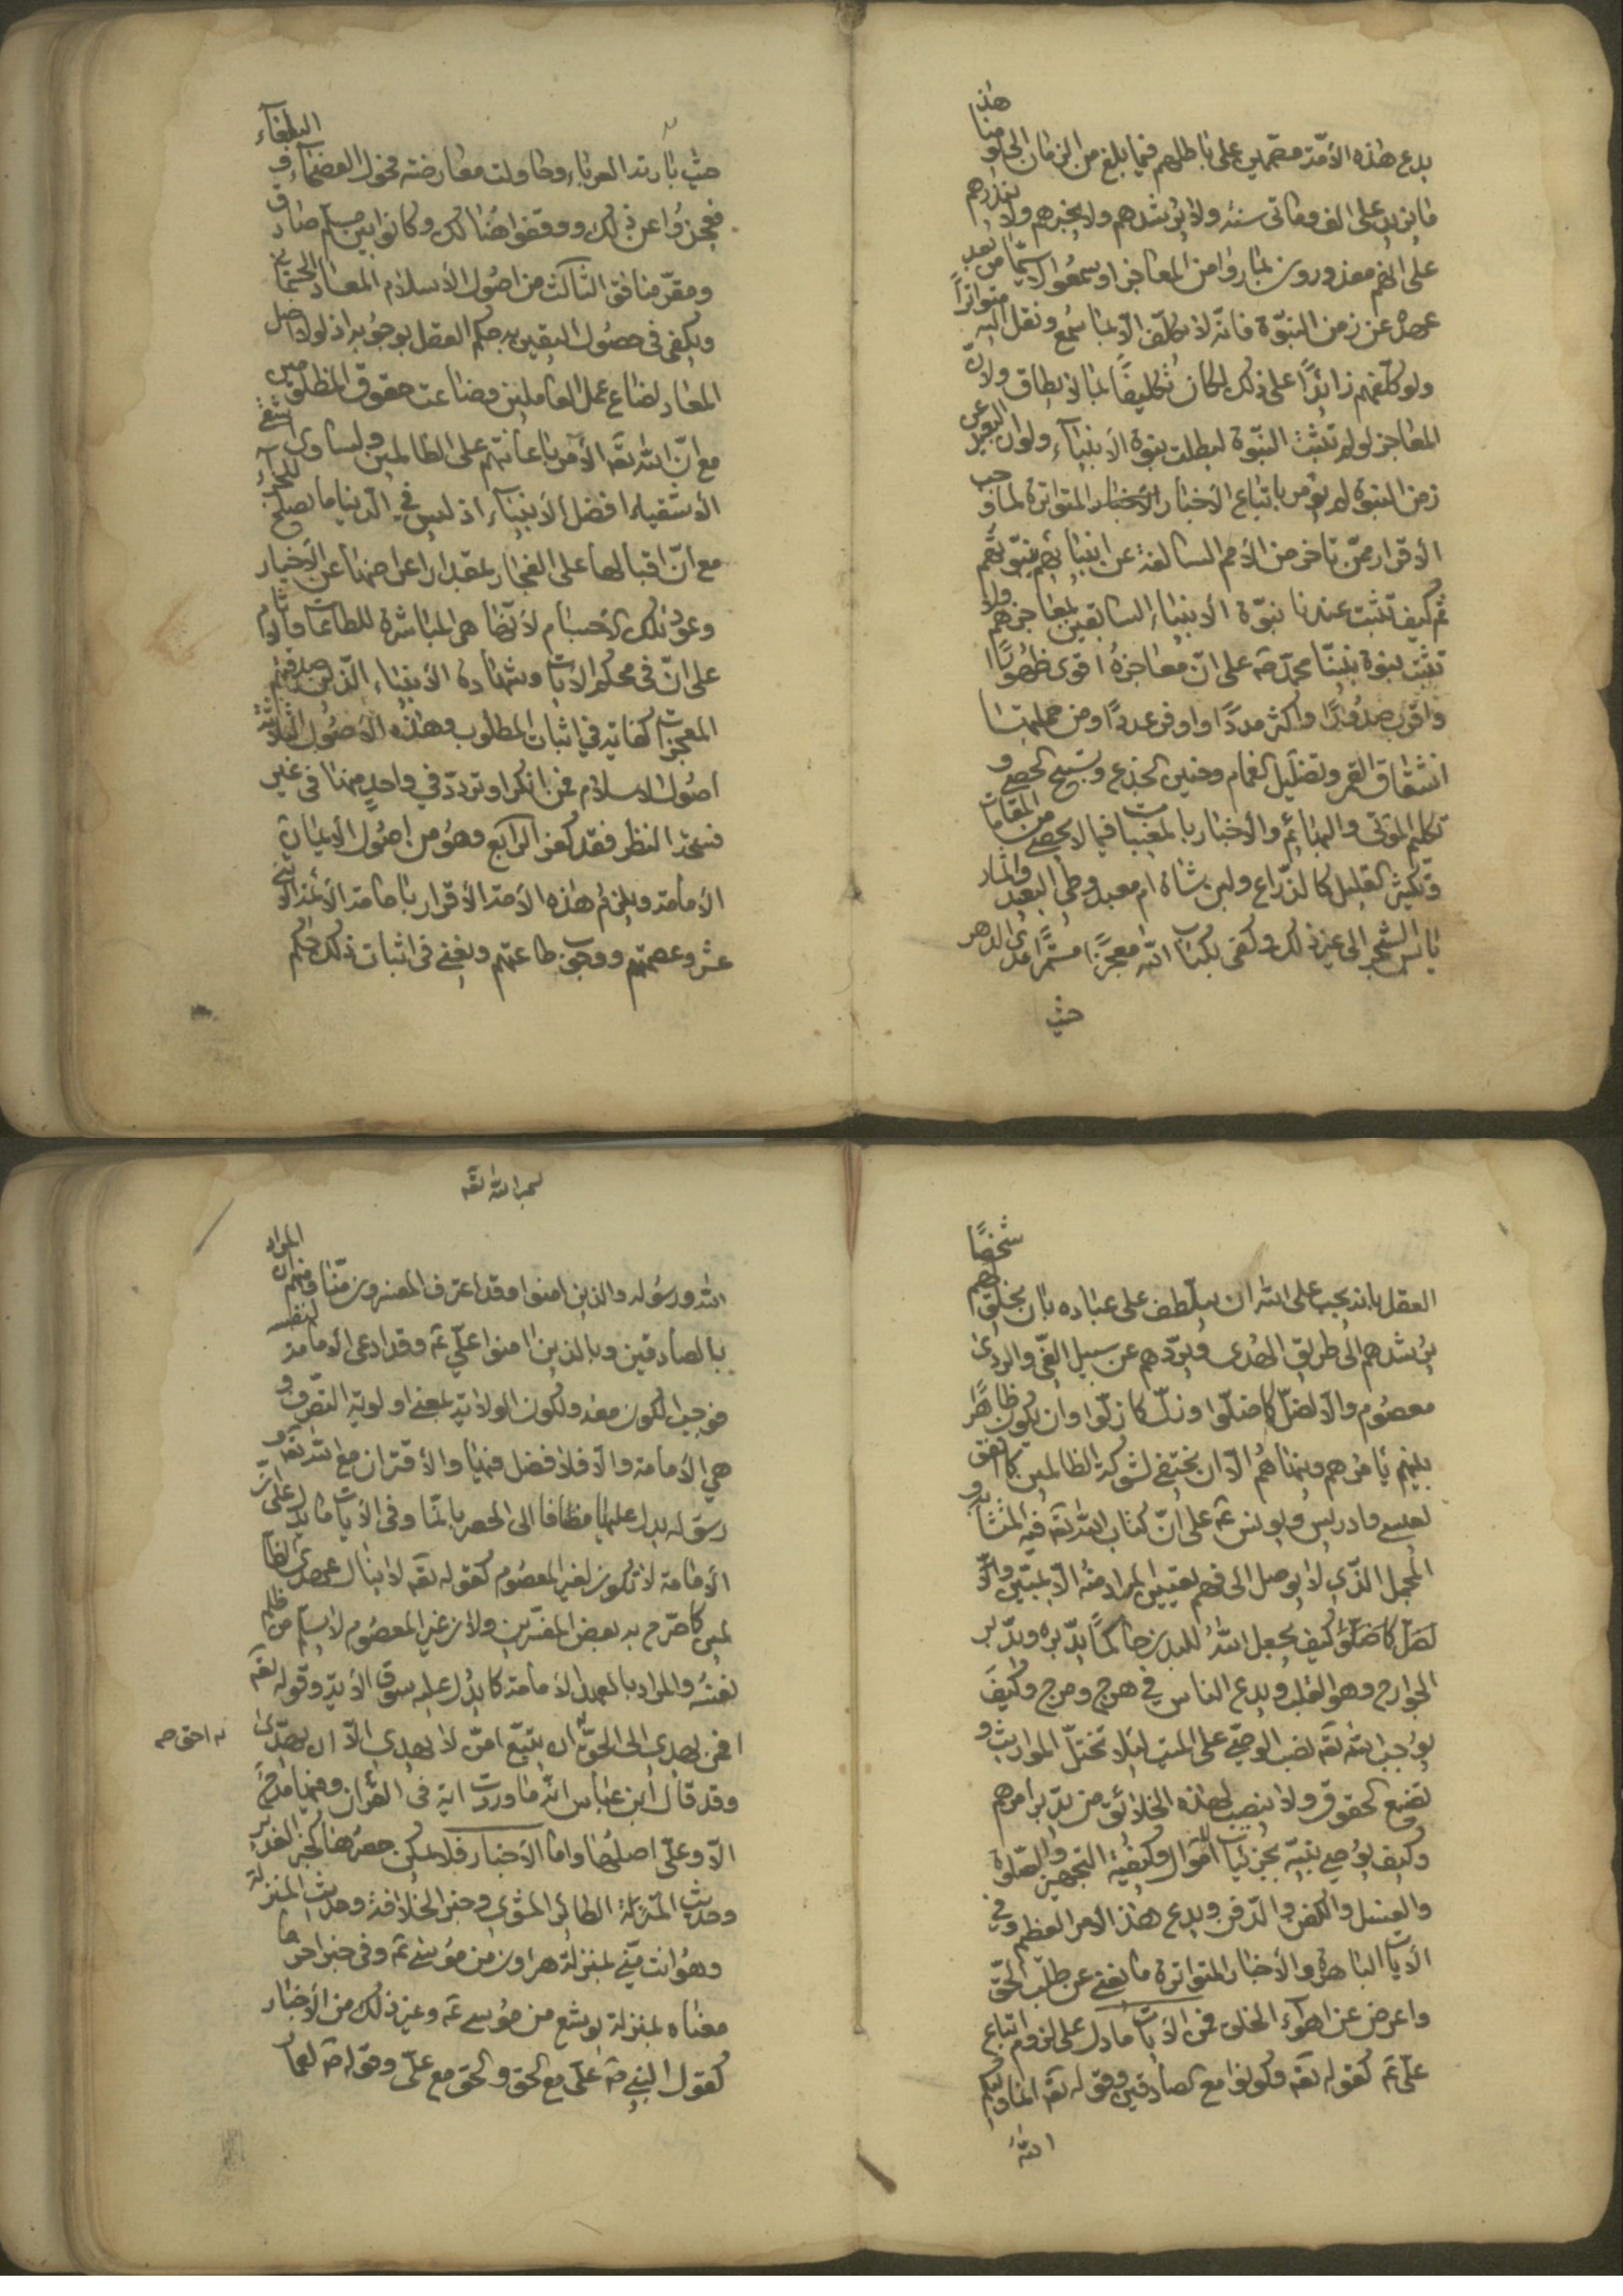 يدع هذه الأمّة مصمّمين على باطلهم فيما بلغ من الزمان الى يومنا هذا
ما يزيد على الف ومأتى سنه ولا يرشدهم ولا يخبرهم ولا يعذرهم
على انهم معذورون بما رووا من المعاجز او سمعوا لا سيّما من بعد
عصره عن زمن النبوّة فانّه لا يكلّف الّا بما سمع ونقل اليه متواتراً
ولو كلّفهم زائدًا على ذلك لكان تكليفًا بما لا يطاق ولانّ
المعاجز لو لم تثبت النبّوة لبطلت نبوة الأنبياء ولو ان البعيد عن
زمن النبوة لم يؤمر باتباع الأخبار المتواترة لما وجب
الأقرار ممّن تاخر من الأمم السالفة عن انبيائهم بنبوّتهم
ثم كيف تثبت عندنا نبوّة الأنبياء السابقين بمعاجزهم ولا
تثبت نبوة نبيّنا محمّد صه على انّ معاجزهُ اقوى ظهورًا
واقرب صدورًا واكثر مددًا واوفر عددًا ومن جملتها
انشقاق القمر وتضليل الغمام وحنين الجذع وتسبيح الحصى و
تكليم الموتى والبهائم والأخبار بالمغيبات فيما لا يحصى من المقامات
وتكثير القليل كالذّراع ولبن شاة ام معبد وطي البعيد واثمار
يابس الشجر الى غير ذلك وكفى بكتاب الله معجزًا مستمرًا مدى الدهر
حيث
حيث بارته العرباء وحاولت معارضته فحول الفصحاء و البلغاء
فعجزوا عن ذلك ووقفوا هنالك وكانوا بين مسلم صادق
ومقرّ منافق الثالث من اصُول الأسلام المعاد الجسمانى
ويكفى في حصُول اليقين به حكم العقل بوجوبه اذ لولا اصل
المعاد لضاع عمل العاملين وضاعت حقوق المظلومين
مع انّ الله تعه الأمر باعانتهم على الظالمين ولساوى اشقى
الأشقياء افضل الأنبياء اذ ليس في الدنيا ما يصلح للجزاء
مع انّ اقبالها على الفجار بمقدار اعراضها عن الأخيار
وعود تلك الأجسام لأنّها هي المباشرة للطاعات والآثام
على انّ في محكم الآيات وشهادة الأنبياء الّذين صدقتهم
المعجزات كفاية في اثبات المطلوب وهذه الأصُول الثلاثة
اصُول الاسلام فمن انكر او تردّد في واحدٍ منها في غير
فسحة النظر فقد كفر الرابع وهُو من اصُول الأيمان
الأمامة ويلزم هذه الأمة الأقرار بامامة الأئمة الأثنى
عشر وعصمتهم ووجوب طاعتهم ويغنى في اثبات ذلك حكم
العقل بانه يجب على الله ان يتلطف على عباده بان يخلق لهم شخصًا
يرشدهم الى طريق الهدى ويردّهم عن سبيل الغّي والردى
معصُوم والّا لضلّ كما ضلّوا وزلّ كما زلّوا وان يكون ظاهرًا
بينهم يأمرهم وينهاهُم الّا ان يختفى لشوكة الظالمين كما اتفق
لعيسى وادريس ويونس عه على انّ كتاب الله تعه فيه المتشابه و
المجمل الذّي لا يوصل الى فهم تعيين المراد منه الّا بمبيّن والّا
لضلّ كما ضلّو كيف يجعل اللهُ للبدن حاكمًا يدّبره ويدّبر
الجوارح وهو القلب ويدع الناس في هرج ومرج وكيف
يوُجب الله تعه نصب الوصّي على الميت لئلا تختلّ المواريث و
تضيع الحقوق ولا ينصب لهذه الخلائق من يدّبر امرهم
وكيف يوُصي نبيّه بجزئيات الأموال وكيفية التجهيز والصّلوة
والغسل والكفن والدّفن ويدع هذا الأمر العظيم وفي
الأيات الباهرة والأخبار المتواترة ما يغنى عن طلب الحّق
واعرض عن اهواء الخلق فمن الأيات ما دل على لزوم اتباع
علّي عه كقوله تعه وكونوا مع الصادقين وقوله تعه انما وليكم
اللهُ
الله ورسُوله والذين امنوا وقد اعترف المفسرون منّا ومنهم ان المراد
بالصادقين وبالذين امنوا علّي عه وقد ادعى الأمامة لنفسه
فوجب الكون معه ولكون الولاية بمعنى اولوية التصّرف و
هي الأمامة والّا فلا فضل فيها والأقتران مع الله تعه و
رسوله يدل عليها مضافا الى الحصر بانّما وفي الأيات ما يدل على انّ
الأمامة لا تكون لغير المعصُوم كقوله تعه لا ينال عهدي الظا
لمين كما صّرح به بعض المفسّرين ولان غير المعصوم لا يسلم من ظلم
نفسه والمراد بالعهد الأمامة كما يدُل عليه سوق الأية وقوله تعه
افمن يهدي الى الحقّ ان يتبّع امّن لا يهدي الّا ان يهدّى
احق صح
وقد قال ابن عباس انّه ما وردت اية في القرآن وفيها مدح
الّا وعلّي اصلُها واما الأخبار فلا يمكن حصرُها كخبر الغدير
وحديث الطائر المشوي وخبر الخلافة وحديث المنزلة
وهُو انت منّي بمنزلة هرون من موُسى عه وفي خبر اخر
معناه بمنزلة يوشع من موُسى عه وغير ذلك من الأخبار
كقول النبي صه علّي مع الحق والحق مع علّي وقوله صه